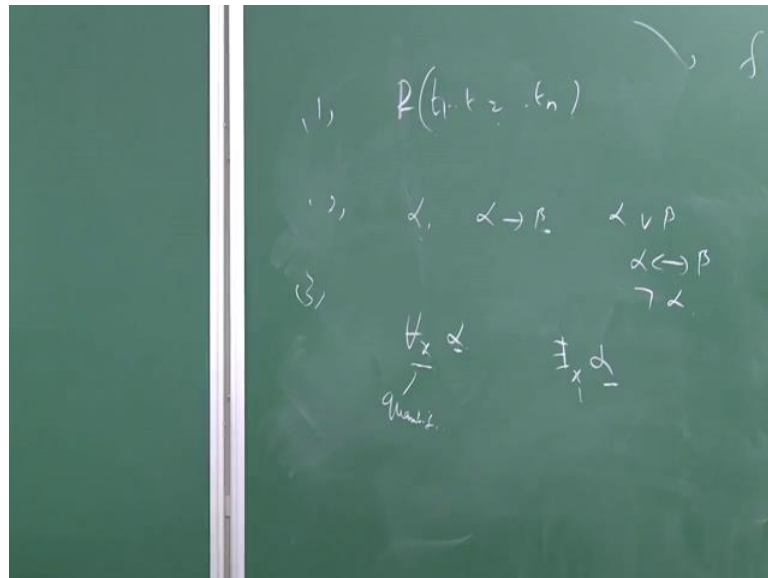 f
(1) R(t₁, t₂ .. tₙ)
(2) α, α → β α ∨ β
α ↔ β
¬ α
(3)
∀ₓ α ∃ₓ α